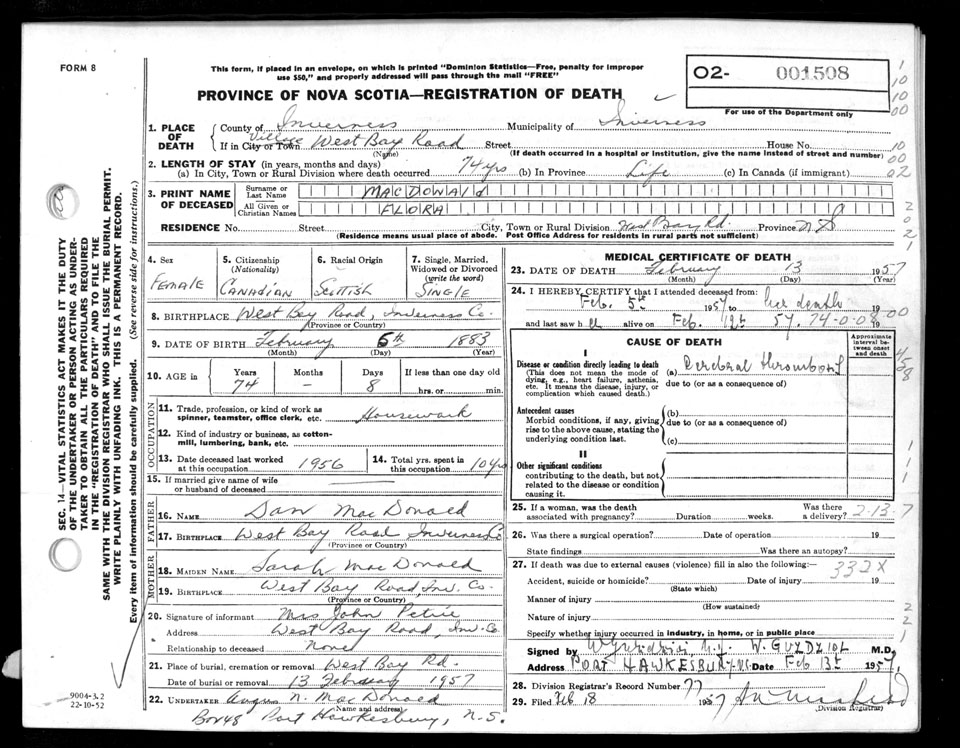 FORM 8
This form, if placed in an envelope, on which is printed "Dominion Statistics—Free, penalty for improper
use $50," and properly addressed will pass through the mail "FREE"
PROVINCE OF NOVA SCOTIA—REGISTRATION OF DEATH
O2- 001508
For use of the Department only
1. PLACE OF DEATH
County of Inverness Municipality of Inverness
If in City or Town Village West Bay Road Street House No.
(Name) (If death occurred in a hospital or institution, give the name instead of street and number)
2. LENGTH OF STAY (in years, months and days)
(a) In City, Town or Rural Division where death occurred 74 yrs (b) In Province Life (c) In Canada (if immigrant)
3. PRINT NAME OF DECEASED
Surname or Last Name MACDONALD
All Given or Christian Names FLORA
RESIDENCE No. Street City, Town or Rural Division West Bay Rd. Province N S
(Residence means usual place of abode. Post Office Address for residents in rural parts not sufficient)
4. Sex FEMALE
5. Citizenship (Nationality) CANADIAN
6. Racial Origin SCOTTISH
7. Single, Married, Widowed or Divorced (write the word) SINGLE
8. BIRTHPLACE West Bay Road, Inverness Co.
(Province or Country)
9. DATE OF BIRTH February 5th 1883
(Month) (Day) (Year)
10. AGE in Years 74 Months – Days 8 If less than one day old hrs. or min.
OCCUPATION
11. Trade, profession, or kind of work as spinner, teamster, office clerk, etc. Housework
12. Kind of industry or business, as cotton-mill, lumbering, bank, etc.
13. Date deceased last worked at this occupation 1956
14. Total yrs. spent in this occupation 10 yrs
15. If married give name of wife or husband of deceased
FATHER
16. NAME Dan MacDonald
17. BIRTHPLACE West Bay Road Inverness Co
(Province or Country)
MOTHER
18. MAIDEN NAME Sarah MacDonald
19. BIRTHPLACE West Bay Road, Inv. Co.
(Province or Country)
20. Signature of informant Mrs John Petrie
Address West Bay Road, Inv. Co.
Relationship to deceased None
21. Place of burial, cremation or removal West Bay Rd.
Date of burial or removal 13 February 1957
22. UNDERTAKER Angus N. MacDonald
(Name and address)
Box 48 Port Hawkesbury, N.S.
MEDICAL CERTIFICATE OF DEATH
23. DATE OF DEATH February 13 1957
(Month) (Day) (Year)
24. I HEREBY CERTIFY that I attended deceased from:
Feb. 5th 1957 to her death 19
and last saw h er alive on Feb. 12th 57. 74-0-08 19 00
CAUSE OF DEATH
Approximate interval between onset and death
I
Disease or condition directly leading to death
(This does not mean the mode of dying, e.g., heart failure, asthenia, etc. It means the disease, injury, or complication which caused death.)
(a) Cerebral thrombosis
due to (or as a consequence of)
Antecedent causes
Morbid conditions, if any, giving rise to the above cause, stating the underlying condition last.
(b)
due to (or as a consequence of)
(c)
II
Other significant conditions
contributing to the death, but not related to the disease or condition causing it.
25. If a woman, was the death associated with pregnancy? Duration weeks. Was there a delivery? 2-13-7
26. Was there a surgical operation? Date of operation 19
State findings Was there an autopsy?
27. If death was due to external causes (violence) fill in also the following:—
332X
Accident, suicide or homicide? Date of injury 19
(State which)
Manner of injury
(How sustained)
Nature of injury
Specify whether injury occurred in industry, in home, or in public place
Signed by W. GUZDZIOL M.D.
Address PORT HAWKESBURY N.S. Date Feb 13th 1957.
28. Division Registrar's Record Number 77
29. Filed Feb 18 1957
(Division Registrar)
SEC. 14—VITAL STATISTICS ACT MAKES IT THE DUTY
OF THE UNDERTAKER OR PERSON ACTING AS UNDER-
TAKER TO OBTAIN ALL THE PARTICULARS REQUIRED
IN THE "REGISTRATION OF DEATH" AND TO FILE THE
SAME WITH THE DIVISION REGISTRAR WHO SHALL ISSUE THE BURIAL PERMIT.
WRITE PLAINLY WITH UNFADING INK. THIS IS A PERMANENT RECORD.
Every item of information should be carefully supplied. (See reverse side for instructions.)
9004-3.2
22-10-52